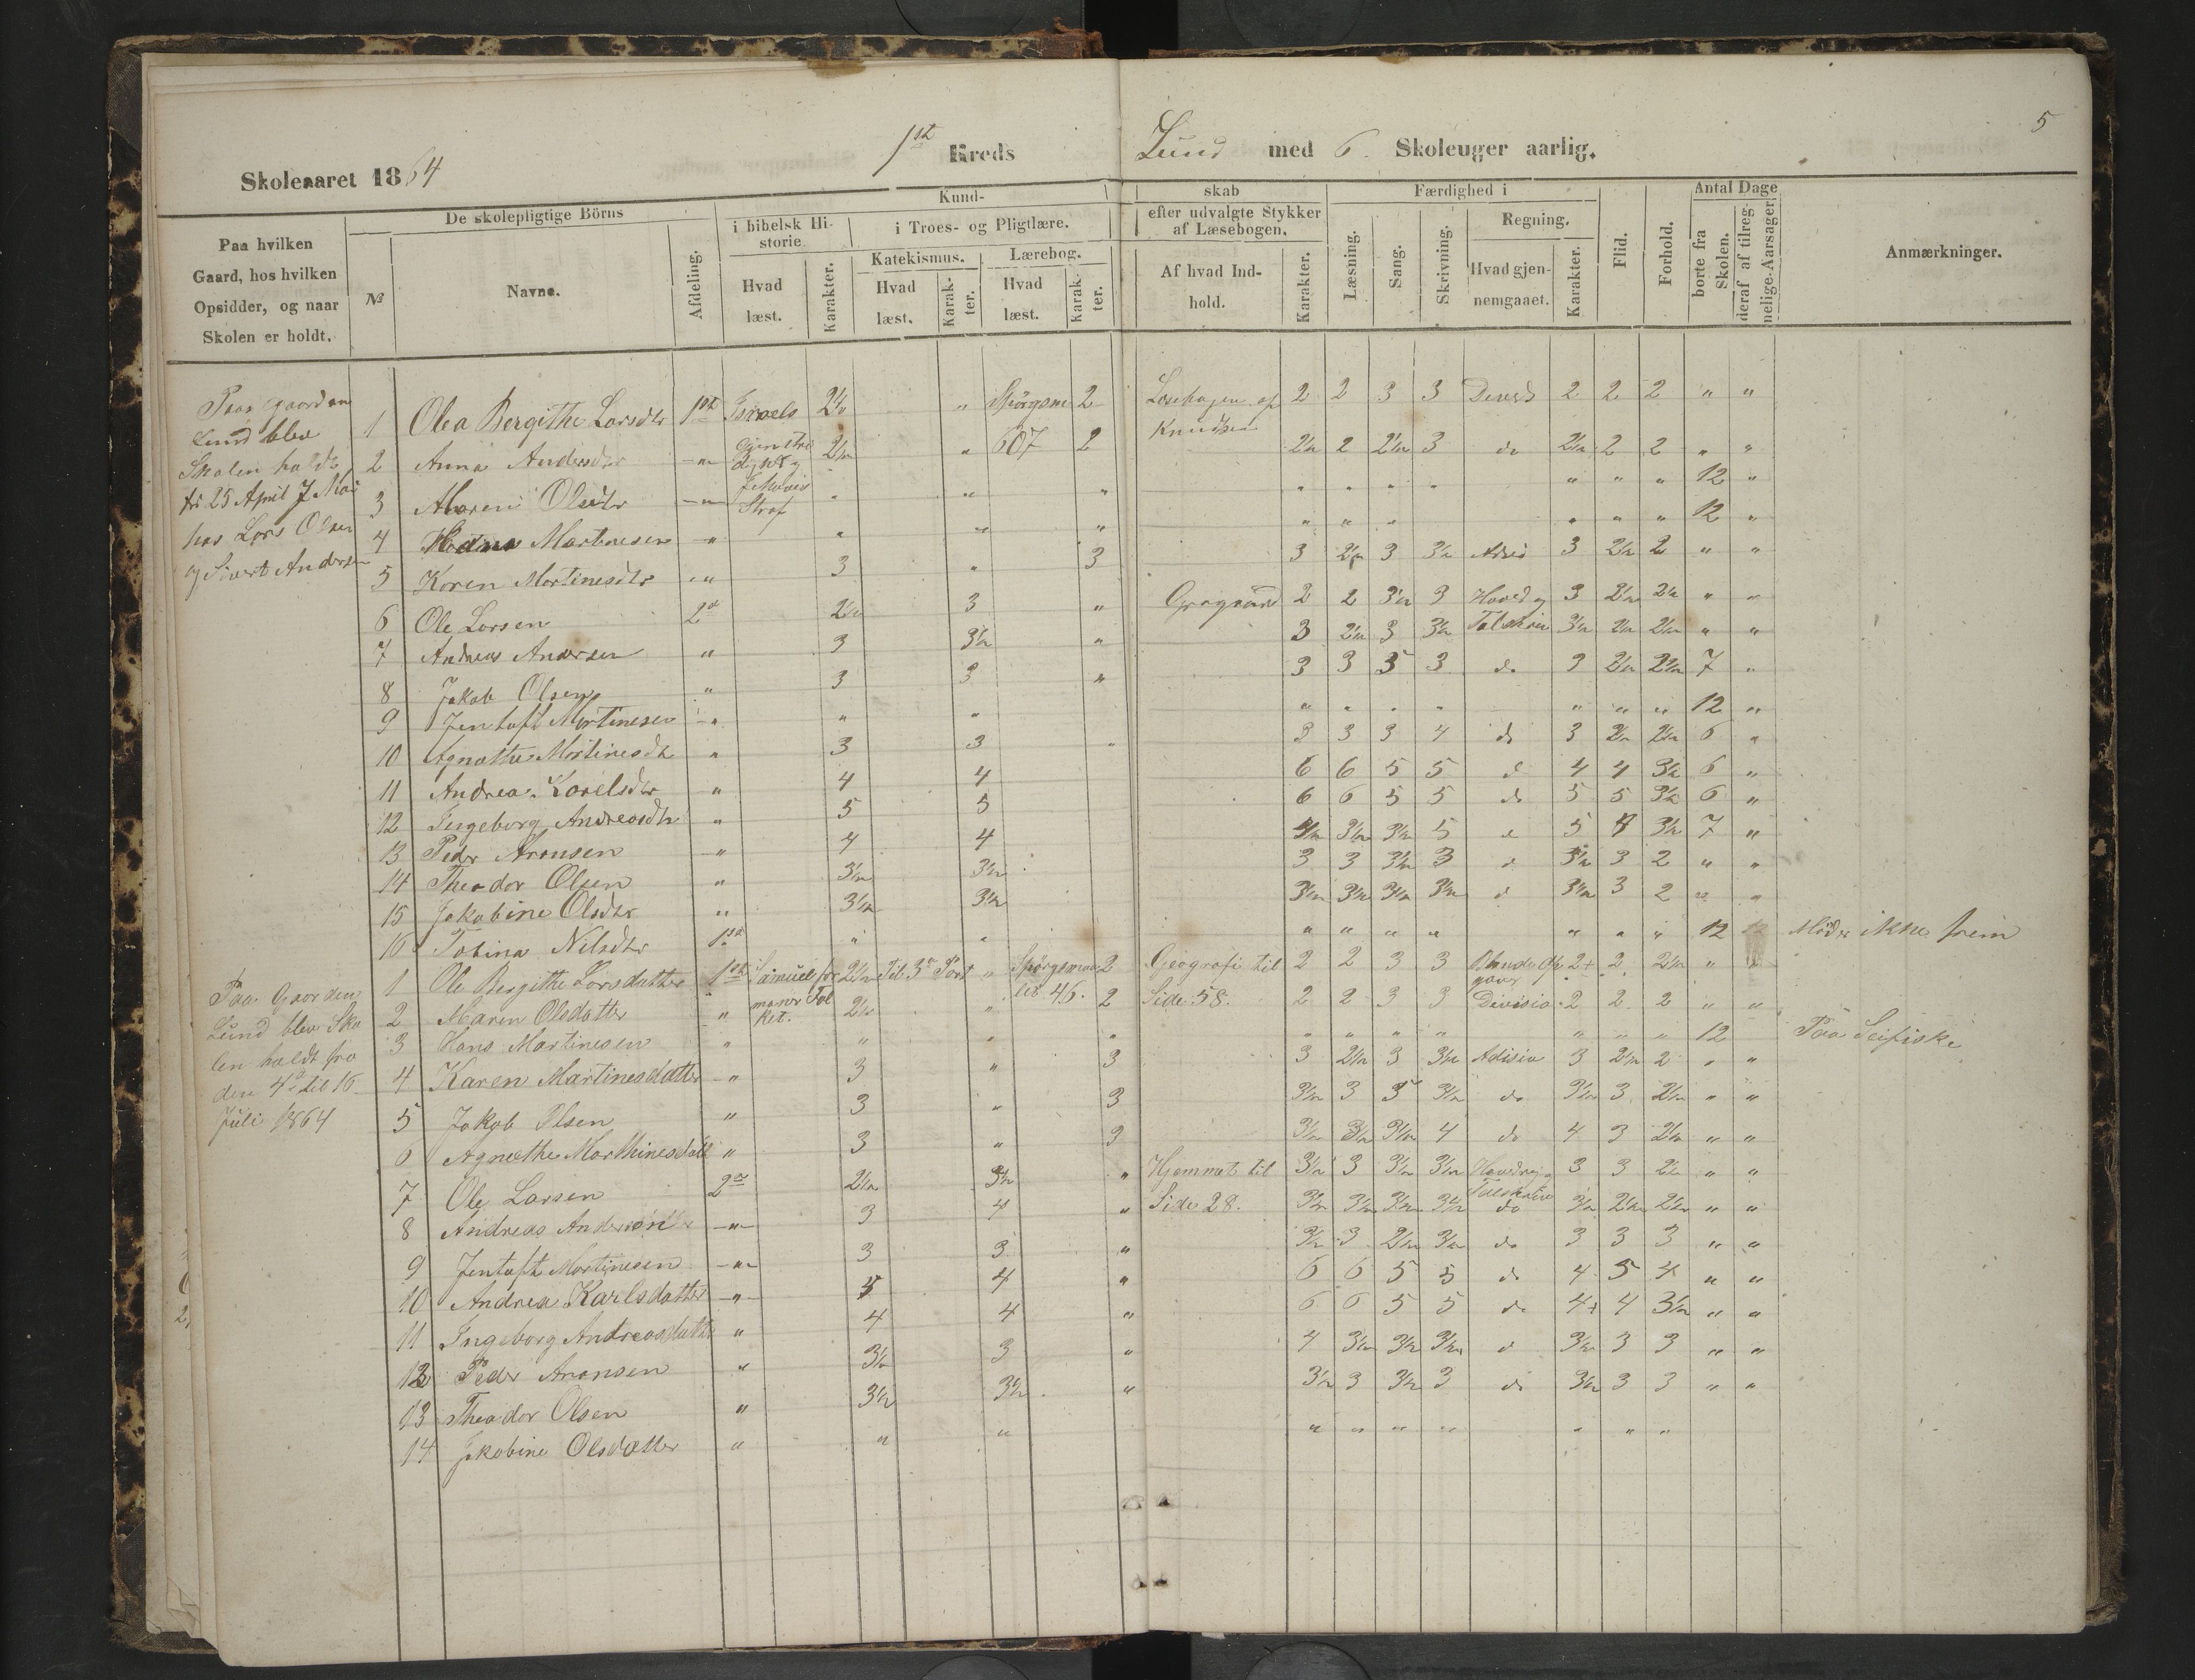 5
Skoleaaret 1864 1ste Kreds Lund med 6. Skoleuger aarlig.
Paa hvilken Gaard, hos hvilken Opsidder, og naar Skolen er holdt.
De skolepligtige Börns
№ Navne. Afdeling.
Kundskab
i bibelsk Historie
Hvad læst. Karakter.
i Troes- og Pligtlære.
Katekismus. Hvad læst. Karakter.
Lærebog. Hvad læst. Karakter.
efter udvalgte Stykker af Læsebogen.
Af hvad Indhold. Karakter.
Færdighed i
Læsning. Sang. Skrivning.
Regning. Hvad gjennemgaaet. Karakter.
Flid. Forhold.
Antal Dage
borte fra Skolen. deraf af tilregnelige Aarsager
Anmærkninger.
Paa Gaarden
Lund blev
Skolen holdt
fr 25 April 7 Mai
hos Lars Olsen
og Sivert Andersen
1 Olea Bergithe Larsdtr 1st Israels 2½ " Spörgsm 2 2 2 3 3 2 2 2 " "
Knudsen
2 Anna Andersdtr —"— 2½ " 607 2 2½ 2 2½ 3 do 2½ 2 2 " "
3 Maren Olsdtr —"— Straf " " " " " " " " " " 12 "
4 Hans Martinesen —"— " " " " " " " " " 12 "
5 Karen Martinesdtr —"— 3 " 3 3 2½ 3 3½ 3 2½ 2 " "
6 Ole Larsen 2d 2½ 3 " 2 2 3½ 3 Hoved og 3 2½ 2½ " "
7 Andreas Andersen " 3 3½ " 3 2½ 3 3½ Talskriv 3½ 2½ 2½ " "
8 Jakob Olsen " 3 3 " 3 3 3 3 do 3 2½ 2½ 7 "
9 Jentoft Martinesen —"— " " " " " " " " " 12 "
10 Agnethe Martinesdtr " 3 3 " 3 3 3 4 do 3 2½ 2½ 6 "
11 Andrea Karelsdtr " 4 4 6 6 5 5 d 4 4 3½ 6 "
12 Ingeborg Andreasdtr " 5 5 6 6 5 5 do 5 5 3½ 6 "
13 Peder Aronsen —"— 4 4 3½ 3½ 3½ 5 d 5 3½ 7 "
14 Theodor Olsen " 3½ 3½ 3 3 3½ 3 d 3½ 3 2 " "
15 Jakobine Olsdtr " 3½ 3½ 3½ 3½ 3½ 3½ d 3½ 3 2 " "
16 Tobina Nilsdtr 1st " " " " " " " " " 12 12 Möder ikke frem
Paa Gaarden
Lund blev Sko
len holdt fra
den 4de til 16
Juli 1864
1 Ole Bergithe Larsdatter 1st Samuel for 2½ Til 3d Part " Spörgsmaal 2 Geografi til 2 2 3 3 2+ 2 2½ " "
2 Maren Olsdatter " maner Fol ket. 2½ " til 46. 2 Side 58. 2 2 3 3 Division 2 2 2 " "
3 Hans Martinesen " " " " " " " " " " " 12 Paa Seifiske
4 Karen Martinesdatter —"— 3 " 3 3 2½ 3 3½ Adision 3 2½ 2 " "
5 Jakob Olsen " 3 " 3 3½ 3 3 3½ do 3½ 3 2½ " "
6 Agnethe Marthinesdatt " 3 " 3 3½ 3½ 3½ 4 do 4 3 2½ " "
7 Ole Larsen 2de 2½ 3½ " Hjemmet til 3½ 3 3½ 3½ Hovedreg 3 3 2½ " "
8 Andreas Andersön —"— 3 4 " Side 28. 3½ 3½ 3½ 3½ Talskriv do 3½ 2½ 2½ " "
9 Jentoft Martinesen —"— 3 3 " 3½ 3 2½ 3½ do 3 3 3 " "
10 Andrea Karlsdatter —"— 5 4 " 6 6 5 5 do 4 5 4 " "
11 Ingeborg Andreasdatter " 4 4 " 6 6 5 5 do 4+ 4 3½ " "
12 Peder Aronsen " 3½ 3 " 4 3½ 3½ 3½ d 3½ 3 3 " "
13 Theodor Olsen " 3½ 3½ " 3½ 3 3½ 3 do 3½ 3 3 " "
14 Jakobine Olsdatter " " " " " " " " " "